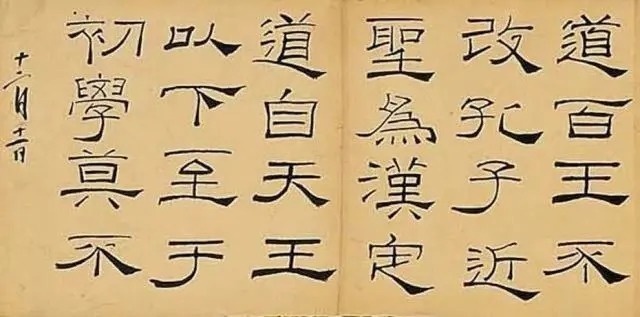 道百王不
改孔子近
聖為漢定
道自天王
以下至于
初學莫不
十二月十一日